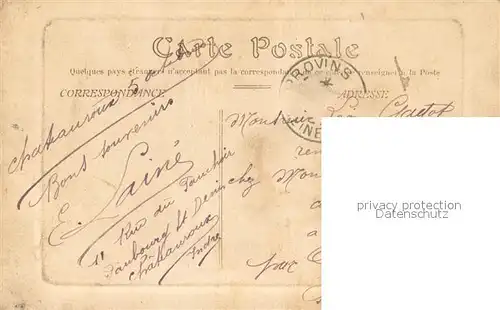 Carte Postale
Quelques pays étrangers n'acceptant pas la correspondance de ce côté, se renseigner à la Poste
CORRESPONDANCE
ADRESSE
PROVINS
Châteauroux 5
Bons souvenirs
E. Lainé
11 Rue du
Faubourg St Denis
Châteauroux
Indre
Monsieur
chez Mon
pour
privacy protection
Datenschutz